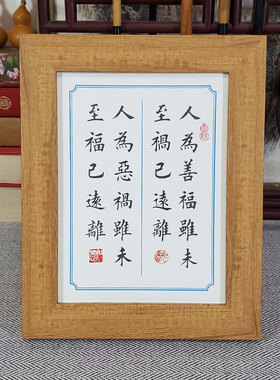 人為善福雖未
至禍已遠離
人為惡禍雖未
至福已遠離